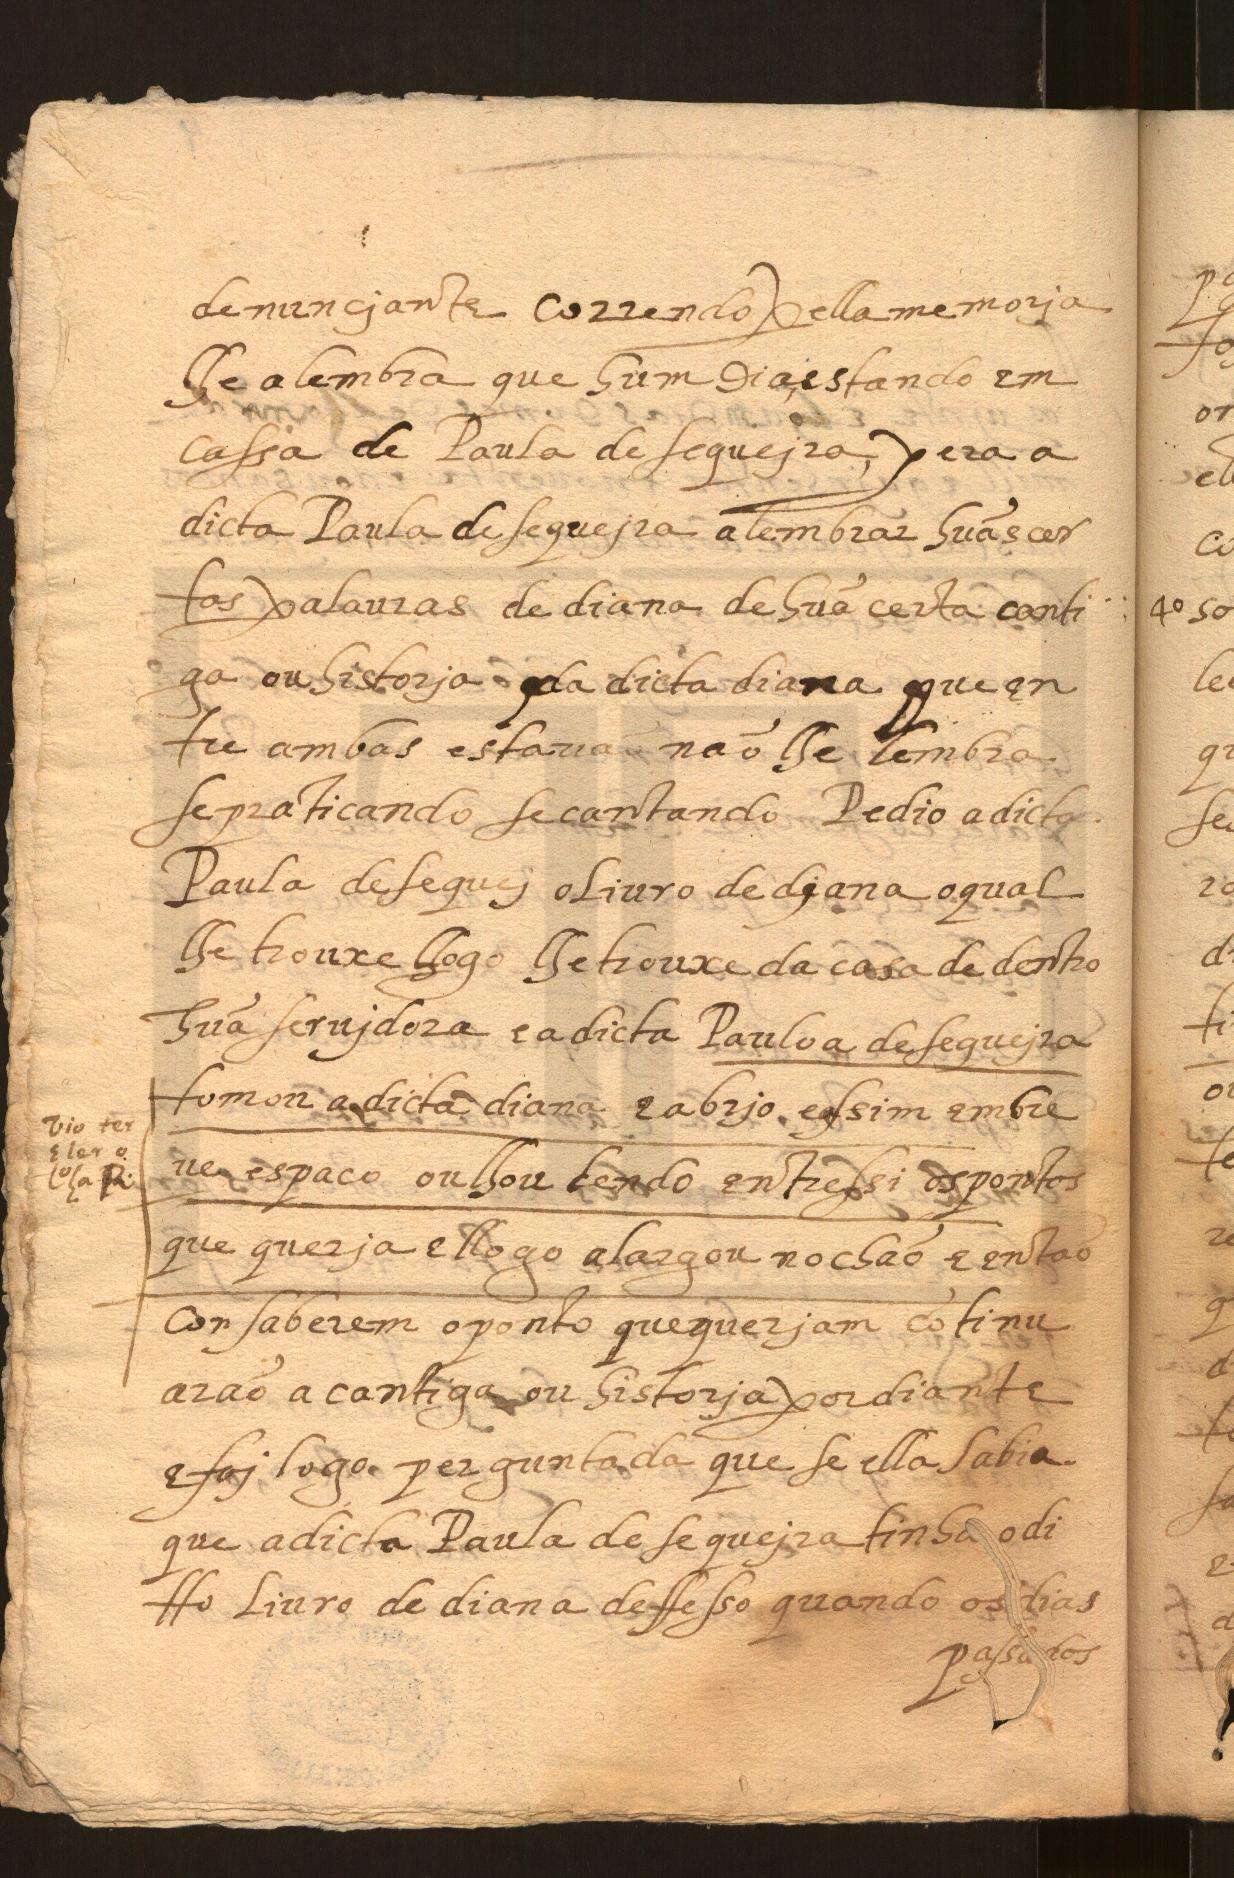 denuncjante correndo pella memorja
lhe alembra que hum dia, estando em
cassa de Paula de sequejra, pera a
dicta Paula de sequejra alembrar huãs cer
tas palauras de diana de huã certa canti
ga ou historja da dicta diana que en
tre ambas estaua naõ lhe lembra
se praticando se cantando Pedio a dicta
Paula de sequej o Liuro de djana o qual
lhe trouxe llogo lhe trouxe da casa de dentro
huã serujdora e a dicta Pauloa de sequejra
tomou a dicta diana e abrjo e assim em bre
ue espaco oulhou lendo entre ssi os pontos
que querja e llogo a largou no chaõ e entaõ
con saberem o ponto que querjam cõtinu
araõ a cantiga ou historja por diante
e foj logo perguntada que se ella sabia
que a dicta Paula de sequejra tinha o di
tto Liuro de diana deffesso quando os dias
passados
vio ter
e ler o
40 so